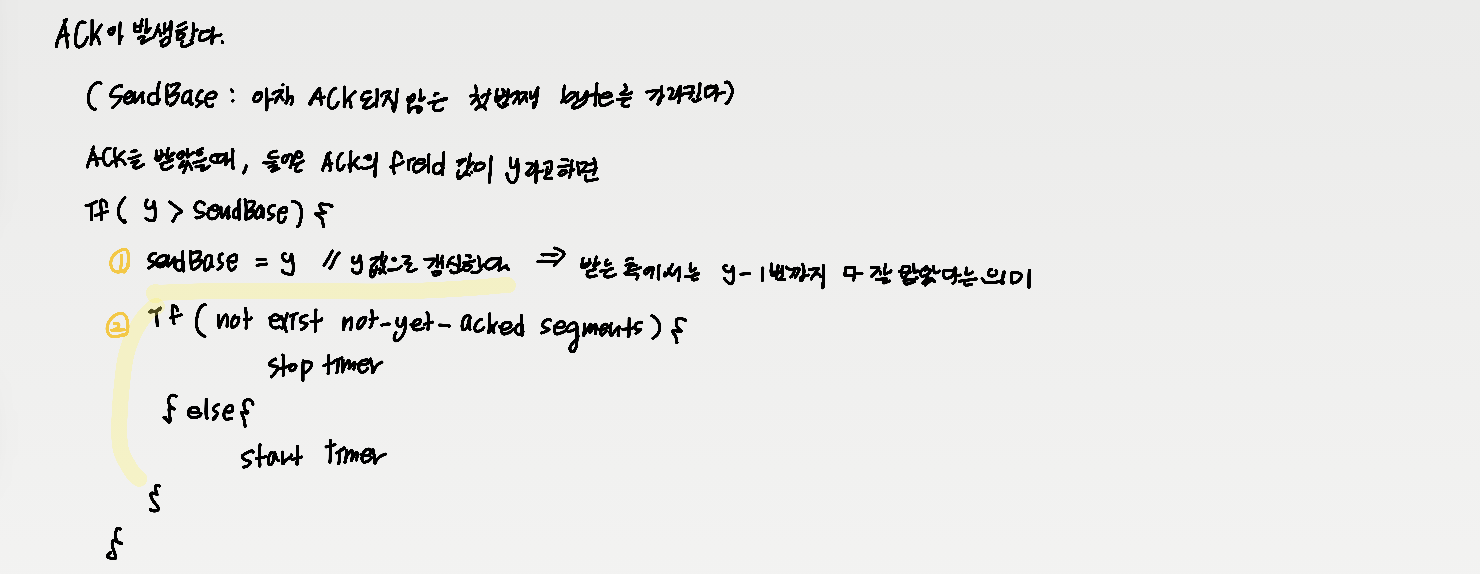 ACK이 발생한다.
(SendBase : 아직 ACK되지 않은 첫번째 byte를 가리킨다)
ACK을 받았을때, 들어온 ACK의 field 값이 y라고하면
If ( y > SendBase) {
① sendBase = y // y값으로 갱신한다 ⇒ 받는 측에서는 y-1번까지 다 잘 받았다는 의미
② If ( not exist not-yet-acked segments) {
stop timer
} else {
start timer
}
}